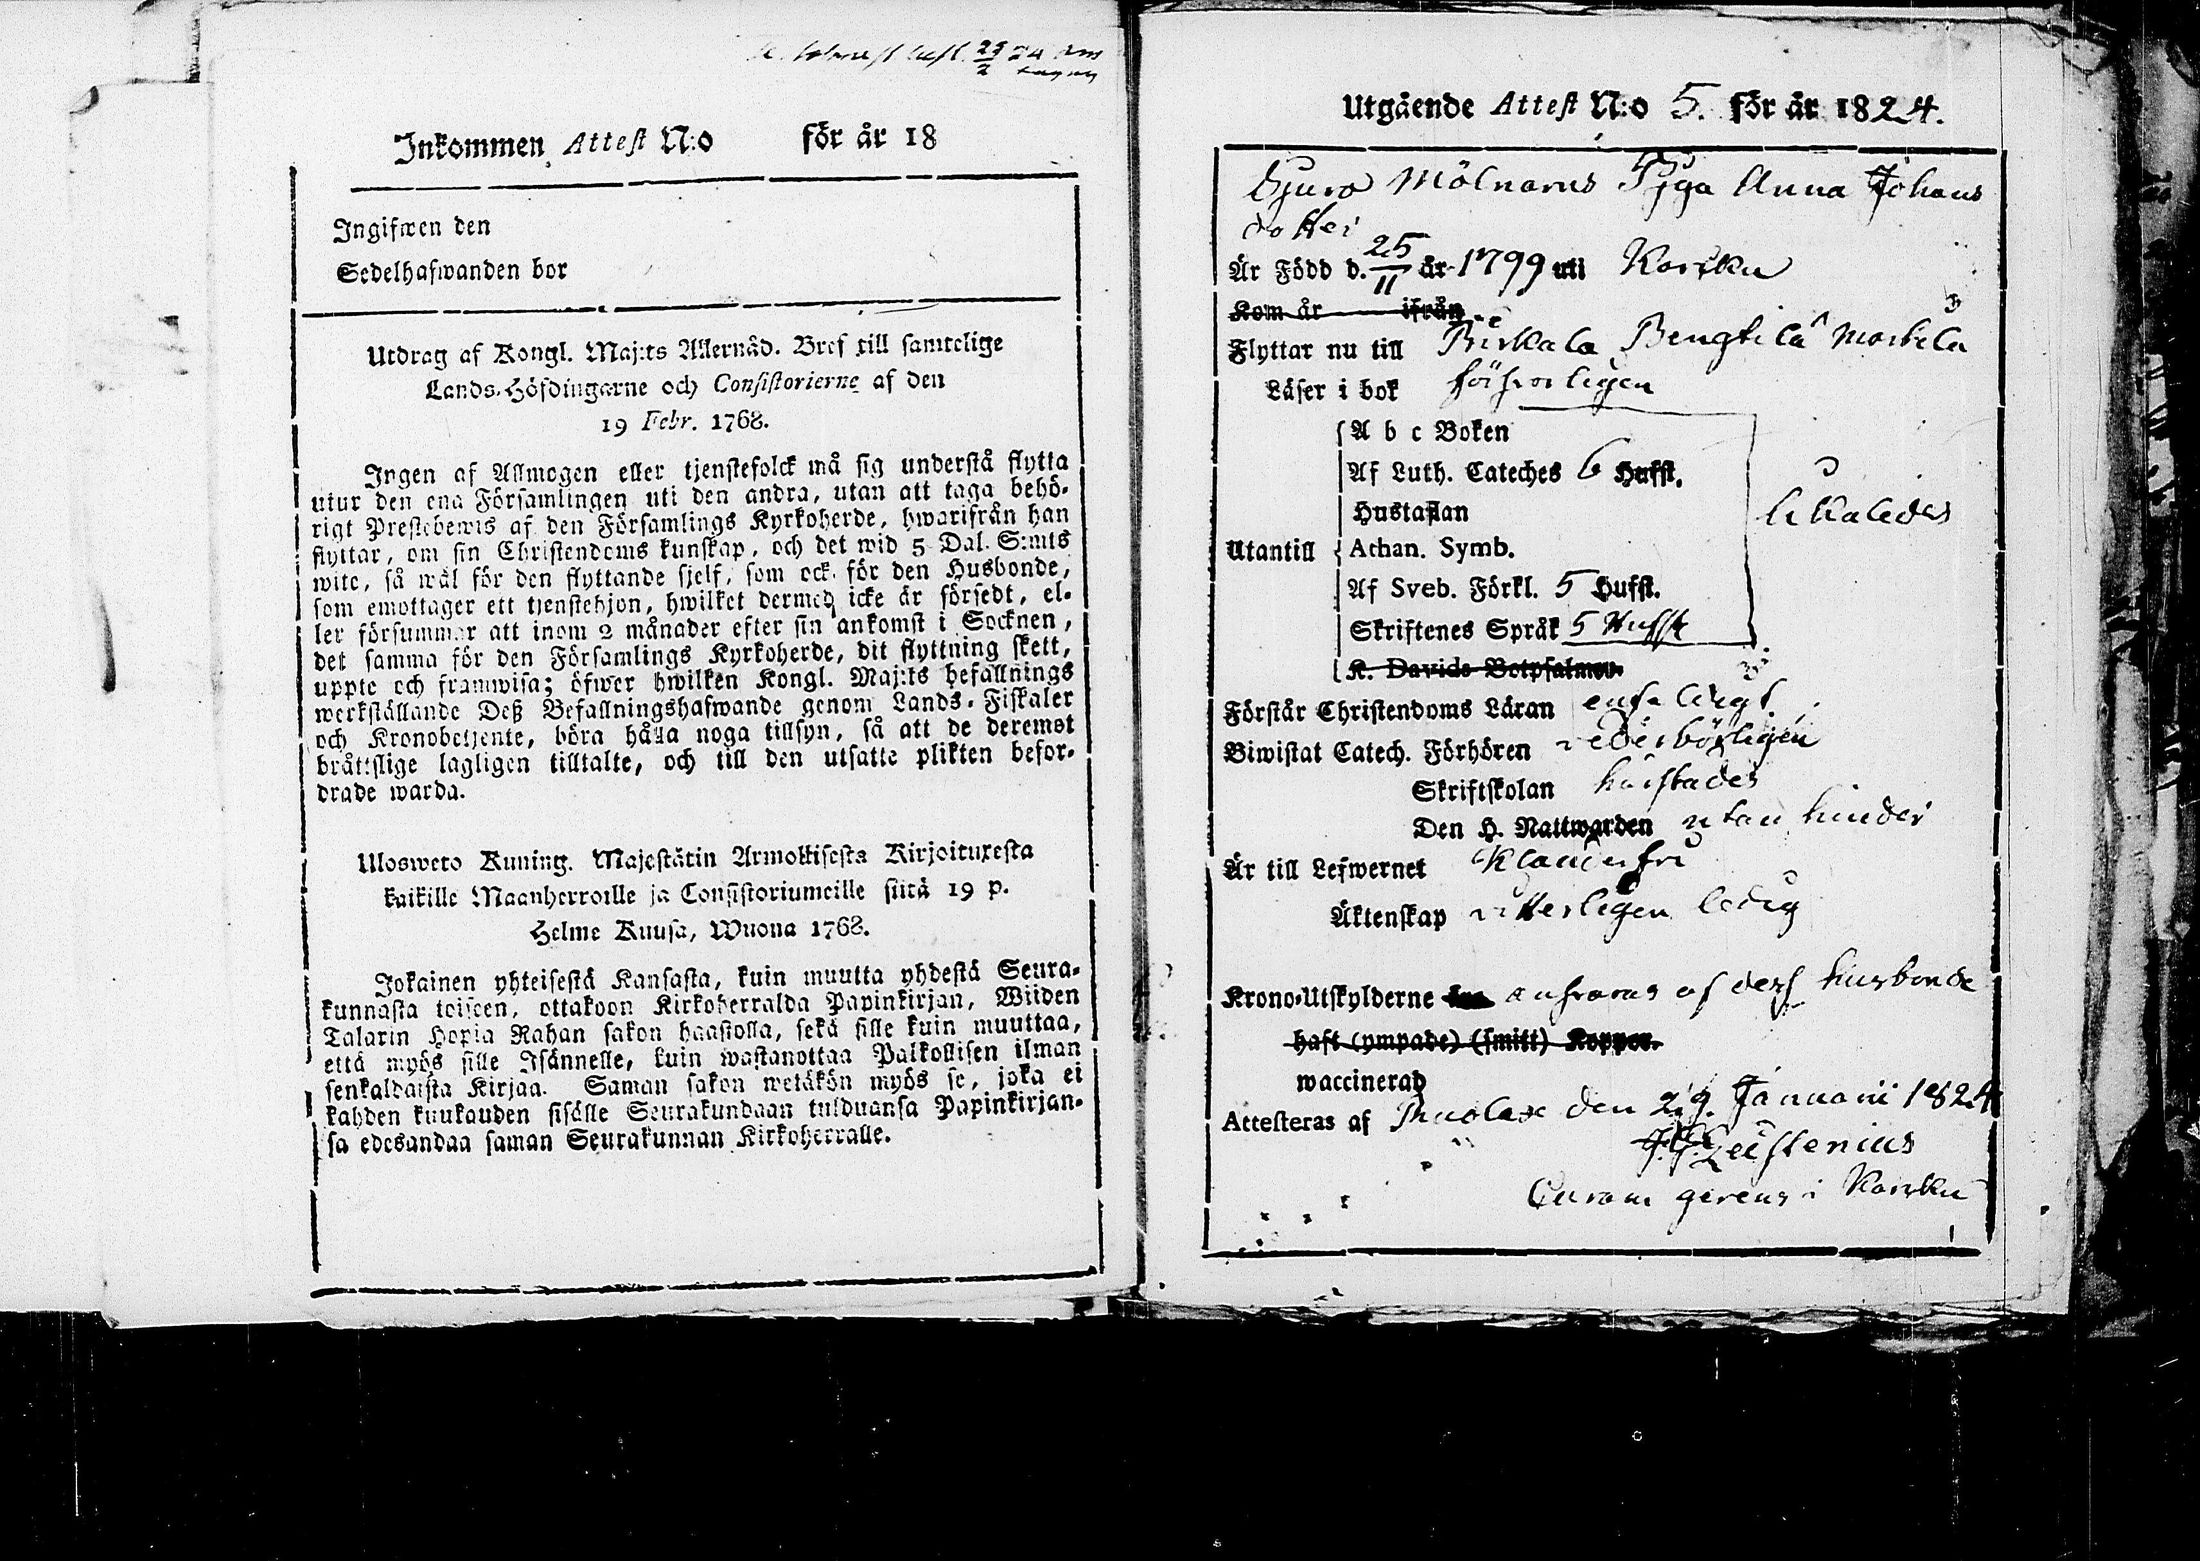 Inkommen Attest N:o för år 18
Ingifwen den
Sedelhafwanden bor
Utdrag af Kongl. Maj:ts Allernåd. Bref till samtelige
Lands-Höfdingarne och Consistorierne af den
19 Febr. 1768.
Ingen af Allmogen eller tjenstefolck må sig understå flytta
utur den ena Församlingen uti den andra, utan att taga behö-
rigt Prestebewis af den Församlings Kyrkoherde, hwarifrån han
flyttar, om sin Christendoms kunskap, och det wid 5 Dal. S:mts
wite, så wäl för den flyttande sjelf, som ock för den Husbonde,
som emottager ett tjenstehjon, hwilket dermed icke är försedt, el-
ler försummar att inom 2 månader efter sin ankomst i Socknen,
det samma för den Församlings Kyrkoherde, dit flyttning skett,
uppte och framwisa; öfwer hwilken Kongl. Maj:ts befallnings
werkställande Deß Befallningshafwande genom Lands-Fiskaler
och Kronobetjente, böra hålla noga tillsyn, så att de deremot
bråttslige lagligen tilltalte, och till den utsatte plikten befor-
drade warda.
Ulosweto Kuning. Majestätin Armollisesta Kirjoituxesta
kaikille Maanherroille ja Consistoriumeille siitä 19 p.
Helme Kuusa, Wuona 1768.
Jokainen yhteisestä Kansasta, kuin muutta yhdestä Seura-
kunnasta toiseen, ottakoon Kirkoherralda Papinkirjan, Wiiden
Talarin Hopia Rahan sakon haastolla, sekä sille kuin muuttaa,
että myös sille Isännelle, kuin wastanottaa Palkollisen ilman
senkaldaista Kirjaa. Saman sakon wetäkön myös se, joka ei
kahden kuukauden sisälle Seurakundaan tulduansa Papinkirjan-
sa edesandaa saman Seurakunnan Kirkoherralle.
Utgående Attest N:o 5. för år 1824.
Mölnarns Piga Anna Johans
dotter
Är Född d. 25/11 år 1799 uti Korsku
Kom år ifrån
Flyttar nu till Birkala Bengtilä Mortila
Läser i bok försvarligen
A b c Boken
Af Luth. Cateches 6 Hufst.
Hustaflan
Utantill Athan. Symb.
likaledes
Af Sveb. Förkl. 5 Hufst.
Skriftenes Språk 5 Hufst
K. Davids Botpsalmer.
Förstår Christendoms Läran enfaldigt
Biwistat Catech. Förhören vederbörligen
Skriftskolan
Den H. Nattwarden utan hinder
Är till Lefwernet Klanderfri
Äktenskap vitterligen ledig
Krono-Utskylderne ansvaras af dess husbonde
haft (ympade) (smitt) Koppor.
waccinerad
Attesteras af den 29. Januarii 1824
Leistenius
Curam gerens i Korsku